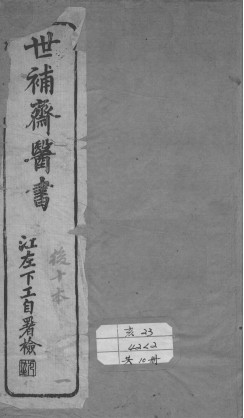 世補齋醫書
江左下工自署檢
後十本
一
23
4222
共10册